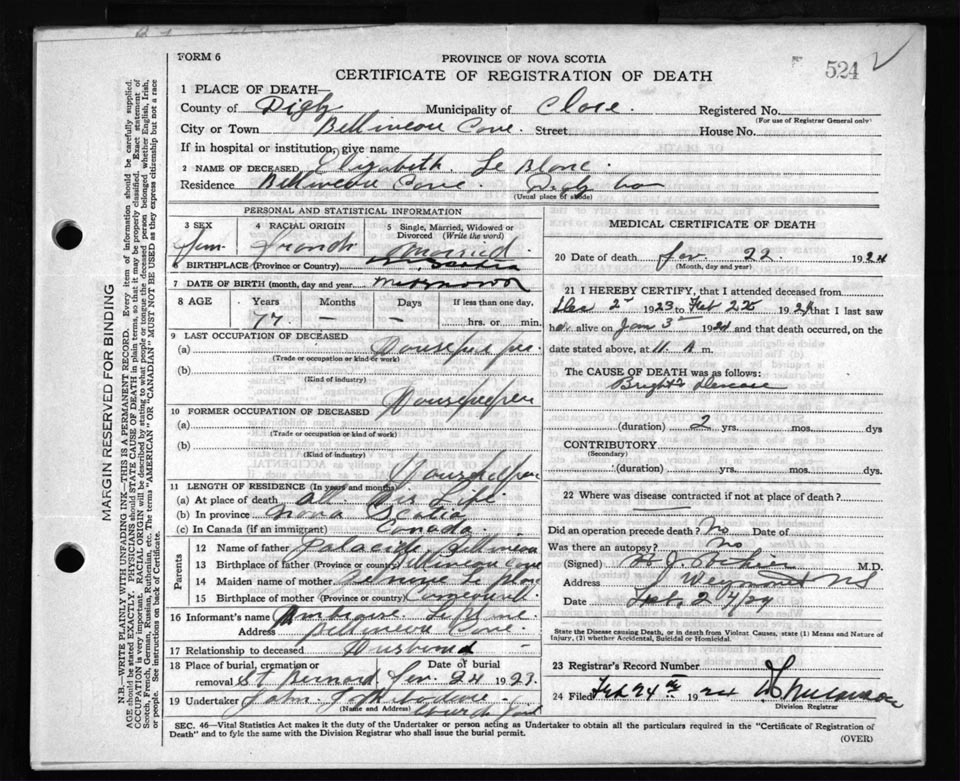 FORM 6
PROVINCE OF NOVA SCOTIA
CERTIFICATE OF REGISTRATION OF DEATH
524
1 PLACE OF DEATH—
County of Digby Municipality of Clare. Registered No.
(For use of Registrar General only)
City or Town Bellineau Cove. Street House No.
If in hospital or institution, give name
2 NAME OF DECEASED Elizabeth Le Blanc.
Residence Bellineau Cove. Digby
(Usual place of abode)
PERSONAL AND STATISTICAL INFORMATION
3 SEX
Fem.
4 RACIAL ORIGIN
French
5 Single, Married, Widowed or Divorced (Write the word)
Married
6 BIRTHPLACE (Province or Country) Scotia
7 DATE OF BIRTH (month, day and year)
8 AGE Years Months Days If less than one day,
77 – – hrs. or min.
9 LAST OCCUPATION OF DECEASED
(a) Housekeeper
(Trade or occupation or kind of work)
(b)
(Kind of industry)
Housekeeper
10 FORMER OCCUPATION OF DECEASED
(a)
(Trade or occupation or kind of work)
(b)
(Kind of industry)
11 LENGTH OF RESIDENCE (In years and months)
(a) At place of death all her Life
(b) In province Nova Scotia
(c) In Canada (if an immigrant) Canada.
Parents
12 Name of father Bellineau
13 Birthplace of father (Province or country) Bellineau Cove
14 Maiden name of mother
15 Birthplace of mother (Province or Country)
16 Informant's name Ambroise LeBlanc
Address Bellineau Cove.
17 Relationship to deceased Husband
18 Place of burial, cremation or removal Date of burial
St Bernard 24 192
19 Undertaker John
(Name and Address) Church Point
MEDICAL CERTIFICATE OF DEATH
20 Date of death 22 1924
(Month, day and year)
21 I HEREBY CERTIFY, that I attended deceased from
Dec 2 1923 to Feb 22 1924 that I last saw
h alive on Jan 3 1924 and that death occurred, on
date stated above, at 11. A m.
The CAUSE OF DEATH was as follows:
Brights Disease
(duration) 2 yrs. mos. dys
CONTRIBUTORY
(Secondary)
(duration) yrs. mos. dys.
22 Where was disease contracted if not at place of death?
Did an operation precede death? No Date of
Was there an autopsy? No
(Signed) M.D.
Address Weymouth NS
Date Feb. 24/24
State the Disease causing Death, or in death from Violent Causes, state (1) Means and Nature of
Injury, (2) whether Accidental, Suicidal or Homicidal.
23 Registrar's Record Number
24 Filed Feb 24th 1924
Division Registrar
SEC. 46—Vital Statistics Act makes it the duty of the Undertaker or person acting as Undertaker to obtain all the particulars required in the "Certificate of Registration of
Death" and to fyle the same with the Division Registrar who shall issue the burial permit.
(OVER)
MARGIN RESERVED FOR BINDING
N.B.—WRITE PLAINLY WITH UNFADING INK—THIS IS A PERMANENT RECORD. Every item of information should be carefully supplied.
AGE should be stated EXACTLY. PHYSICIANS should STATE CAUSE OF DEATH in plain terms, so that it may be properly classified. Exact statement of
OCCUPATION is very important. RACIAL ORIGIN will be described by stating to what people or tongue the deceased person belonged whether English, Irish,
Scotch, French, German, Russian, Ruthenian, etc. The terms "AMERICAN" or "CANADIAN" MUST NOT BE USED as they express citizenship but not a race
or people. See instructions on back of Certificate.